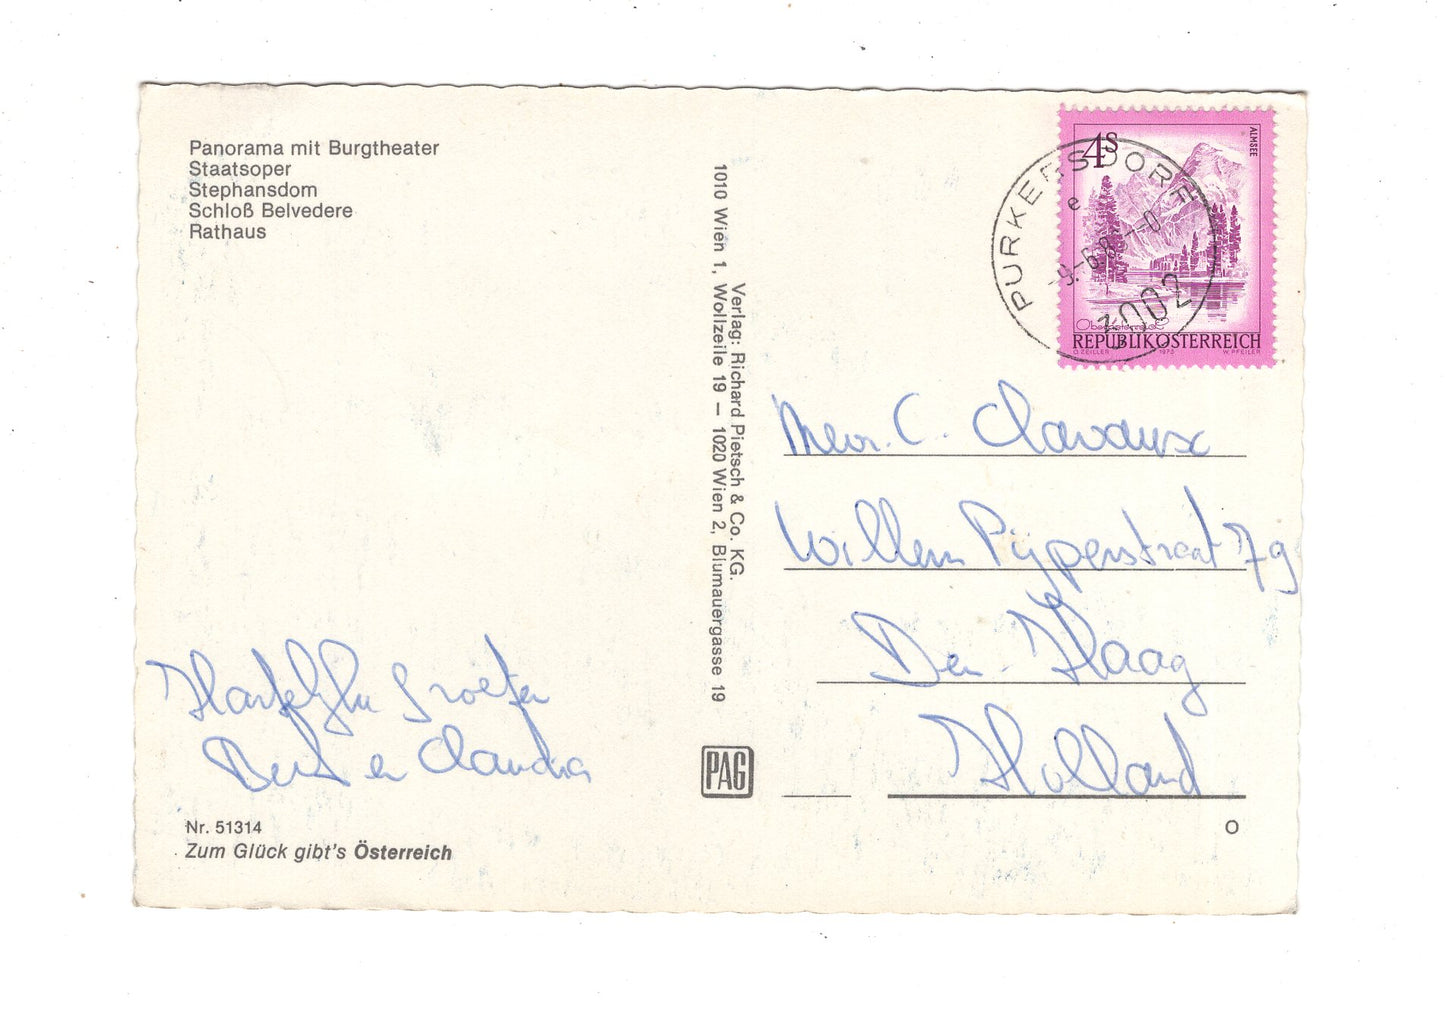 Panorama mit Burgtheater
Staatsoper
Stephansdom
Schloß Belvedere
Rathaus
Hartelijke Groeten
Bert en Claudia
Nr. 51314
Zum Glück gibt's Österreich
Verlag: Richard Pietsch & Co. KG.
1010 Wien 1, Wollzeile 19 — 1020 Wien 2, Blumauergasse 19
PAG
4S
ALMSEE
Oberösterreich
REPUBLIK ÖSTERREICH
O. ZEILLER 1973 W. PFEILER
PURKERSDORF
e
3002
Mevr. C.
Willem Pijperstraat 79
Den-Haag
Holland
O